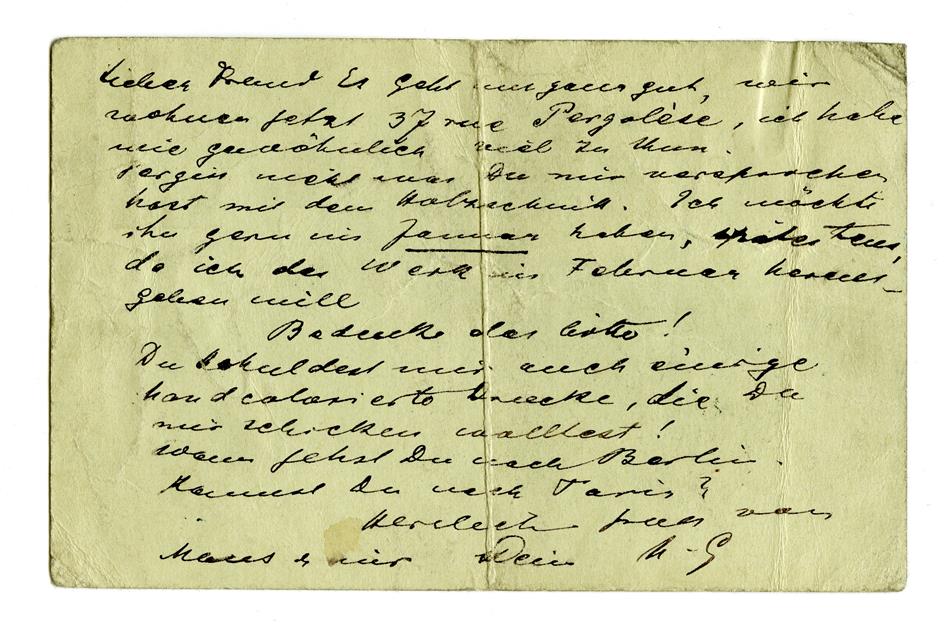 Lieber Freund Es geht uns ganz gut, wir
wohnen jetzt 37 rue Pergolèse, ich habe
wie gewöhnlich viel zu thun.
Vergiss nicht was Du mir versprochen
hast mit dem Holzschnitt. Ich möchte
ihn gern im Januar haben, spätestens,
da ich das Werk im Februar heraus-
geben will
Bedenke das bitte!
Du schuldest mir auch einige
handcolorierte Drucke, die Du
mir schicken wolltest!
Wann gehst Du nach Berlin.
Kommst Du nach Paris?
Herzlich Gruss von
Maus & mir Dein